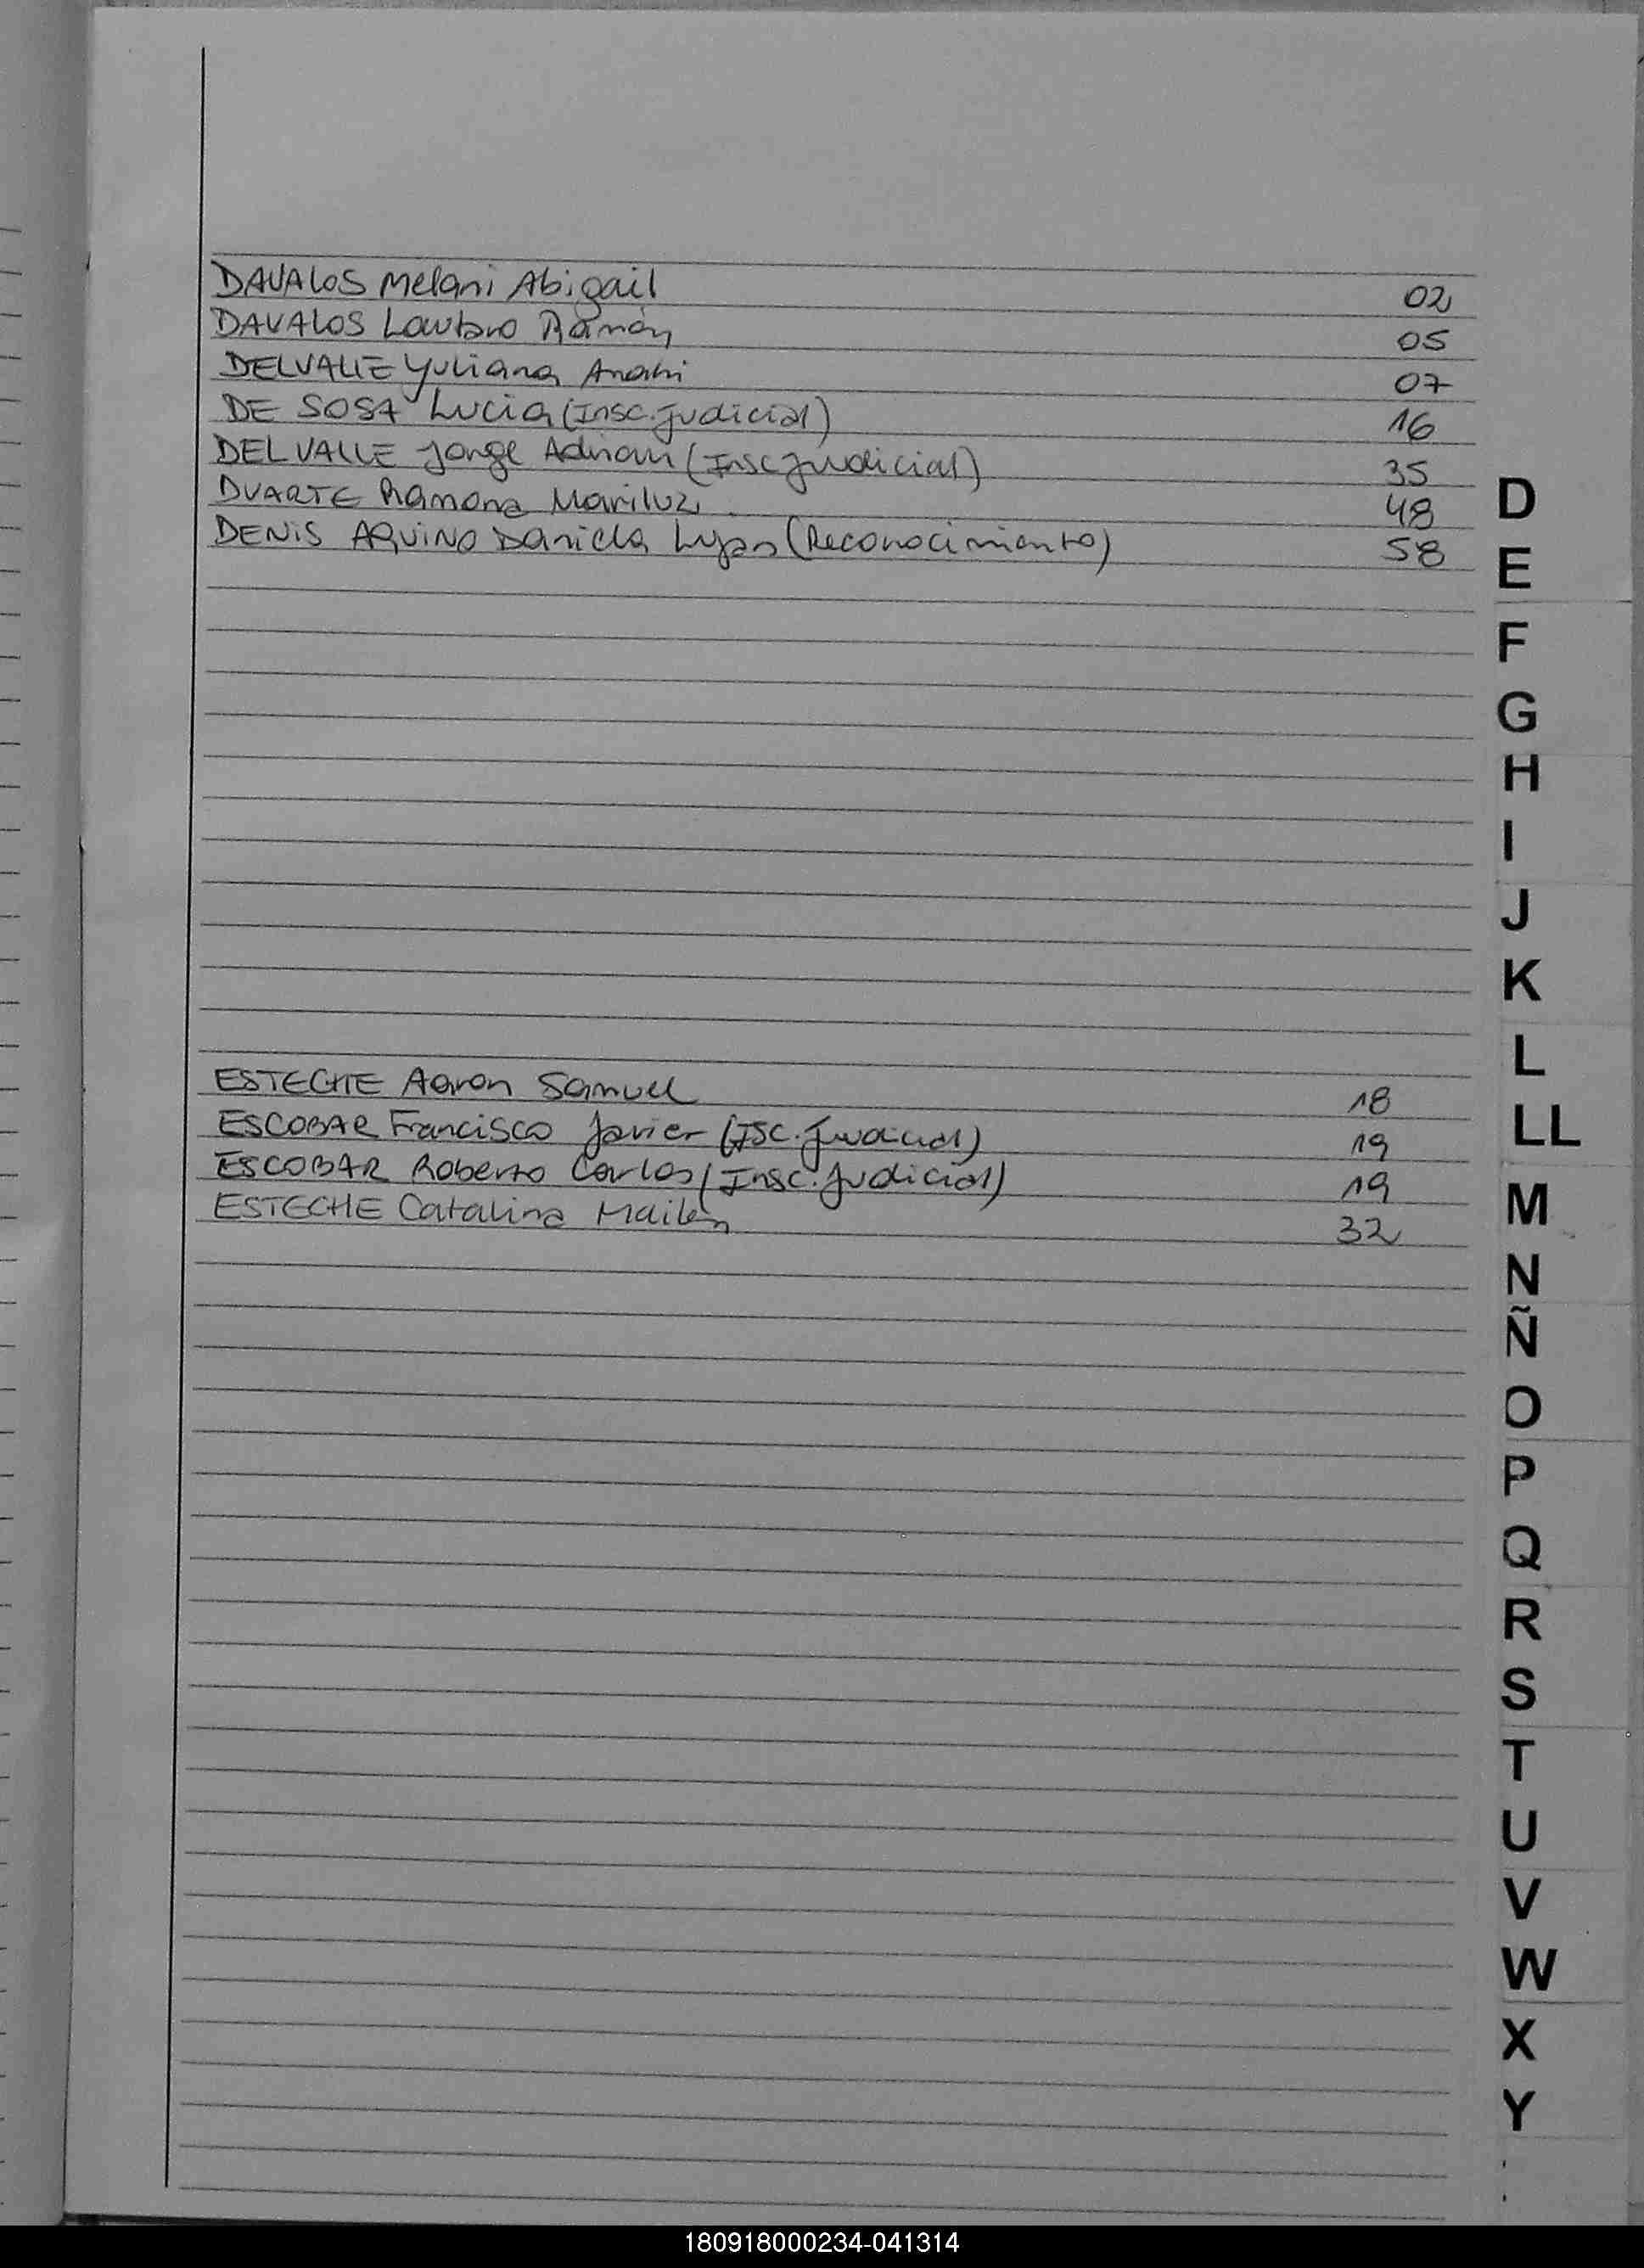 DAVALOS Melani Abigail 02
DAVALOS Lautaro Ramón 05
DELVALLE Yuliana Anahi 07
DE SOSA Lucia (Insc. Judicial) 16
DEL VALLE Jorge Adrian (Insc Judicial) 35
DUARTE Ramona Mariluz 48
D
DENIS AQUINO Daniela Lujan (Reconocimiento) 58
E
F
G
H
I
J
K
L
ESTECHE Aaron Samuel 18
ESCOBAR Francisco Javier (Isc. Judicial) 19
LL
ESCOBAR Roberto Carlos (Insc. Judicial) 19
M
ESTECHE Catalina Mailen 32
N
Ñ
O
P
Q
R
S
T
U
V
W
X
Y
180918000234-041314